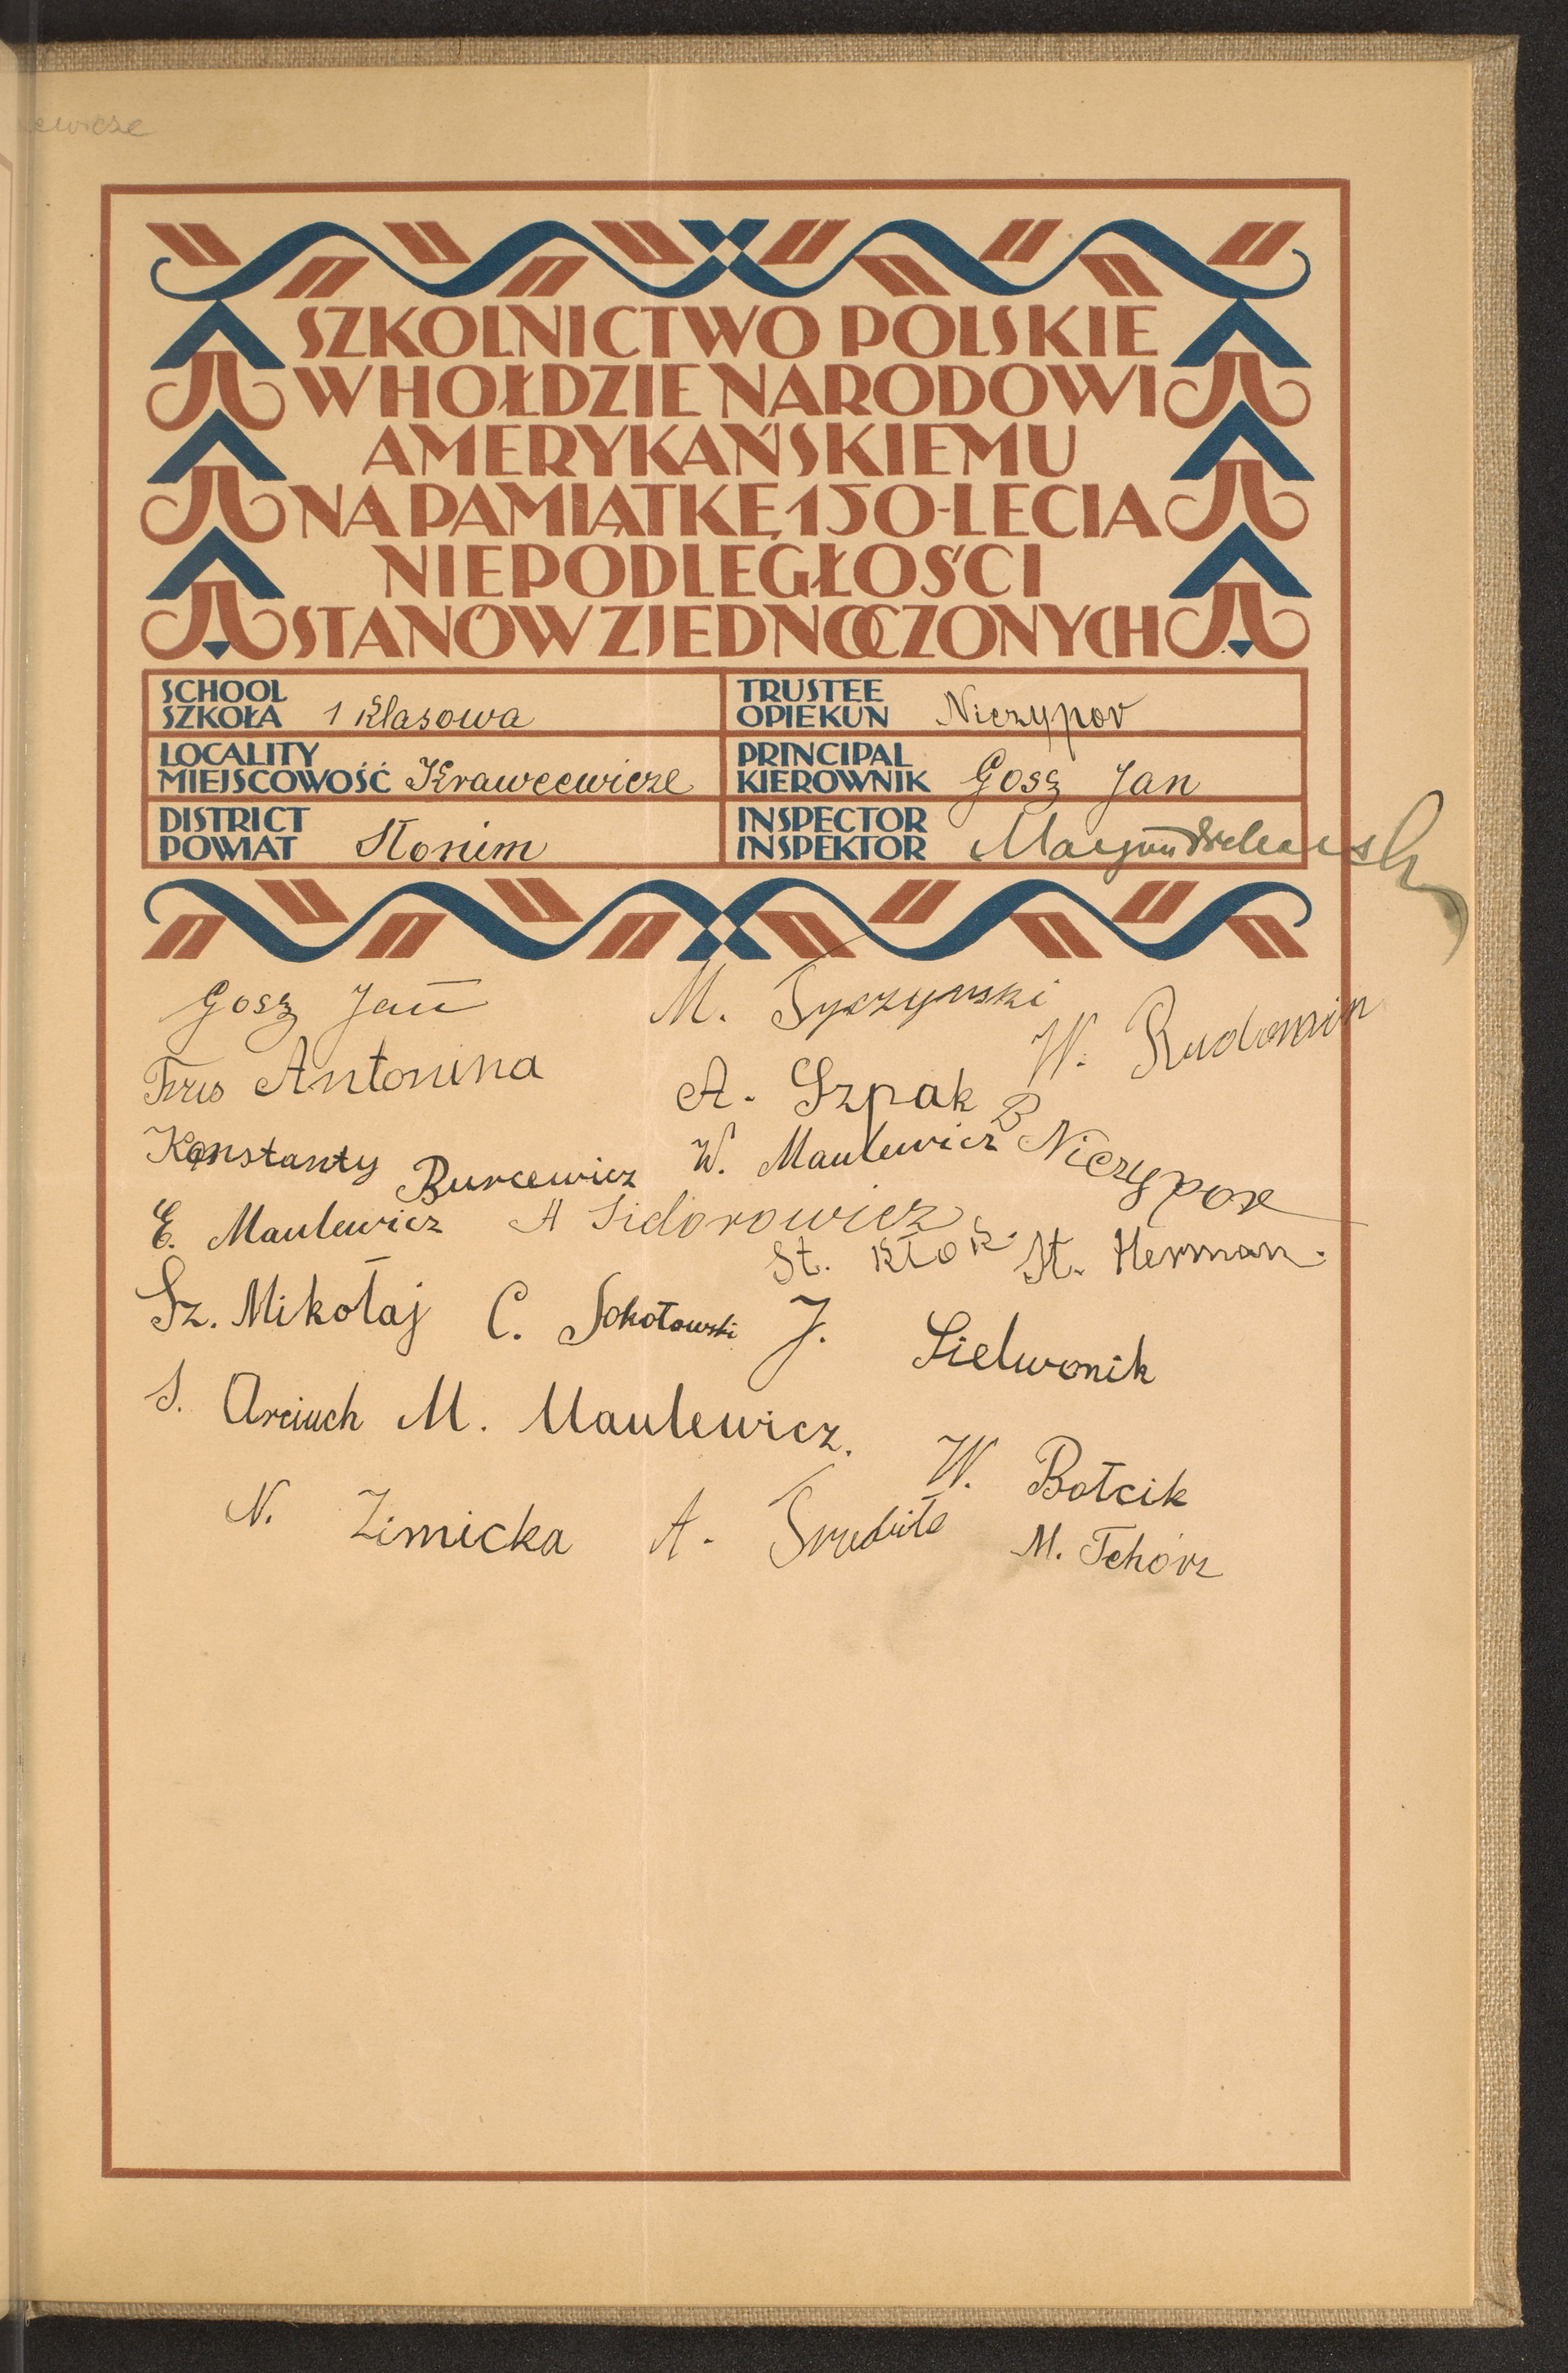 ewicze
SZKOLNICTWO POLSKIE
W HOŁDZIE NARODOWI
AMERYKAŃSKIEMU
NA PAMIĄTKĘ 150-LECIA
NIEPODLEGŁOŚCI
STANÓW ZJEDNOCZONYCH
SCHOOL
SZKOŁA 1 klasowa
TRUSTEE
OPIEKUN Niczypor
LOCALITY
MIEJSCOWOŚĆ Krawcewicze
PRINCIPAL
KIEROWNIK Gosz Jan
DISTRICT
POWIAT Słonim
INSPECTOR
INSPEKTOR
Gosz Jan M. Tyczynski
W. Rudomin
Antonina A. Szpak
Konstanty Burcewicz W. Maulewicz B Niczypor
E. Maulewicz A Sidorowicz
St. Kłok. St. Herman.
Sz. Mikołaj C. Sokołowski J. Sielwonik
S. Arciuch M. Maulewicz.
W. Bołcik
N. Zimicka A.
M. Tchórz